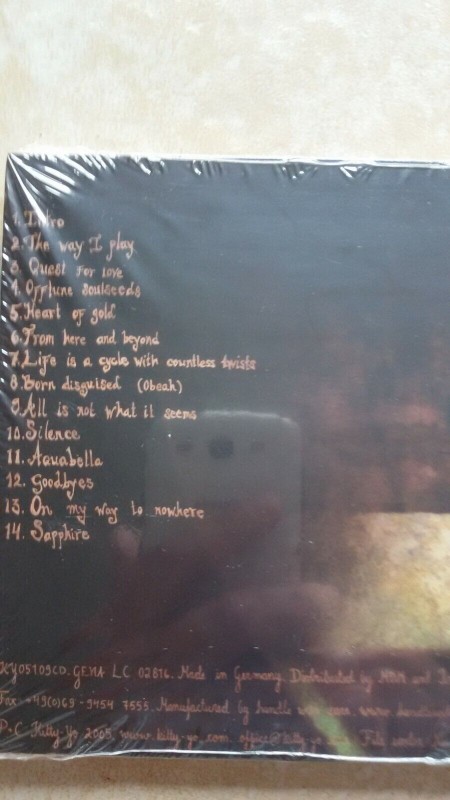 1. Intro
2. The way I play
3. Quest for love
4. Offtune soulseeds
5. Heart of gold
6. From here and beyond
7. Life is a cycle with countless twists
8. Born disguised (Obeah)
9. All is not what it seems
10. Silence
11. Aquabella
12. Goodbyes
13. On my way to nowhere
14. Sapphire
KY05109CD. GEMA LC 02816. Made in Germany. Distributed by and
Fax +49(0)69-9454 7555. Manufactured by handle with care. www.
P+C Kitty-Yo 2005. www.kitty-yo.com. office@kitty-yo. File under